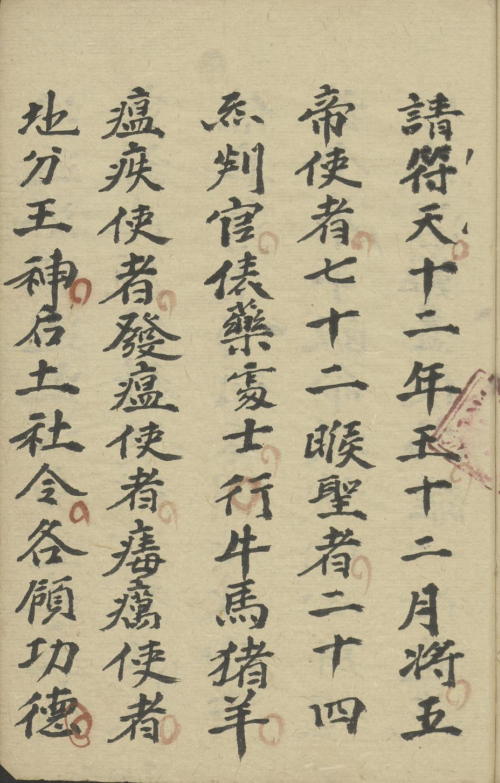 請符天十二年王十二月将五
帝使者七十二睺聖者二十四
炁判官俵藥䖏士行牛馬猪羊
瘟疾使者發瘟使者痗癘使者
地分王神后土社令各領功德